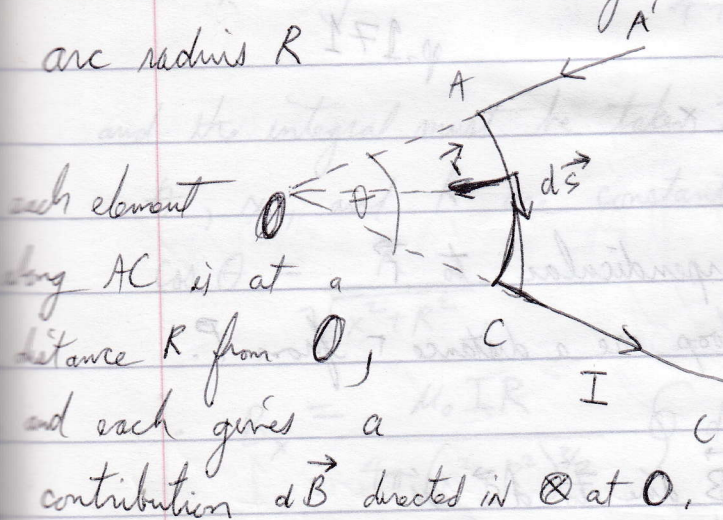 arc radius R
A'
A
each element
O
θ
r⃗
ds⃗
along AC is at a
distance R from O,
C
I
C
and each gives a
contribution dB⃗ directed in ⊗ at O.